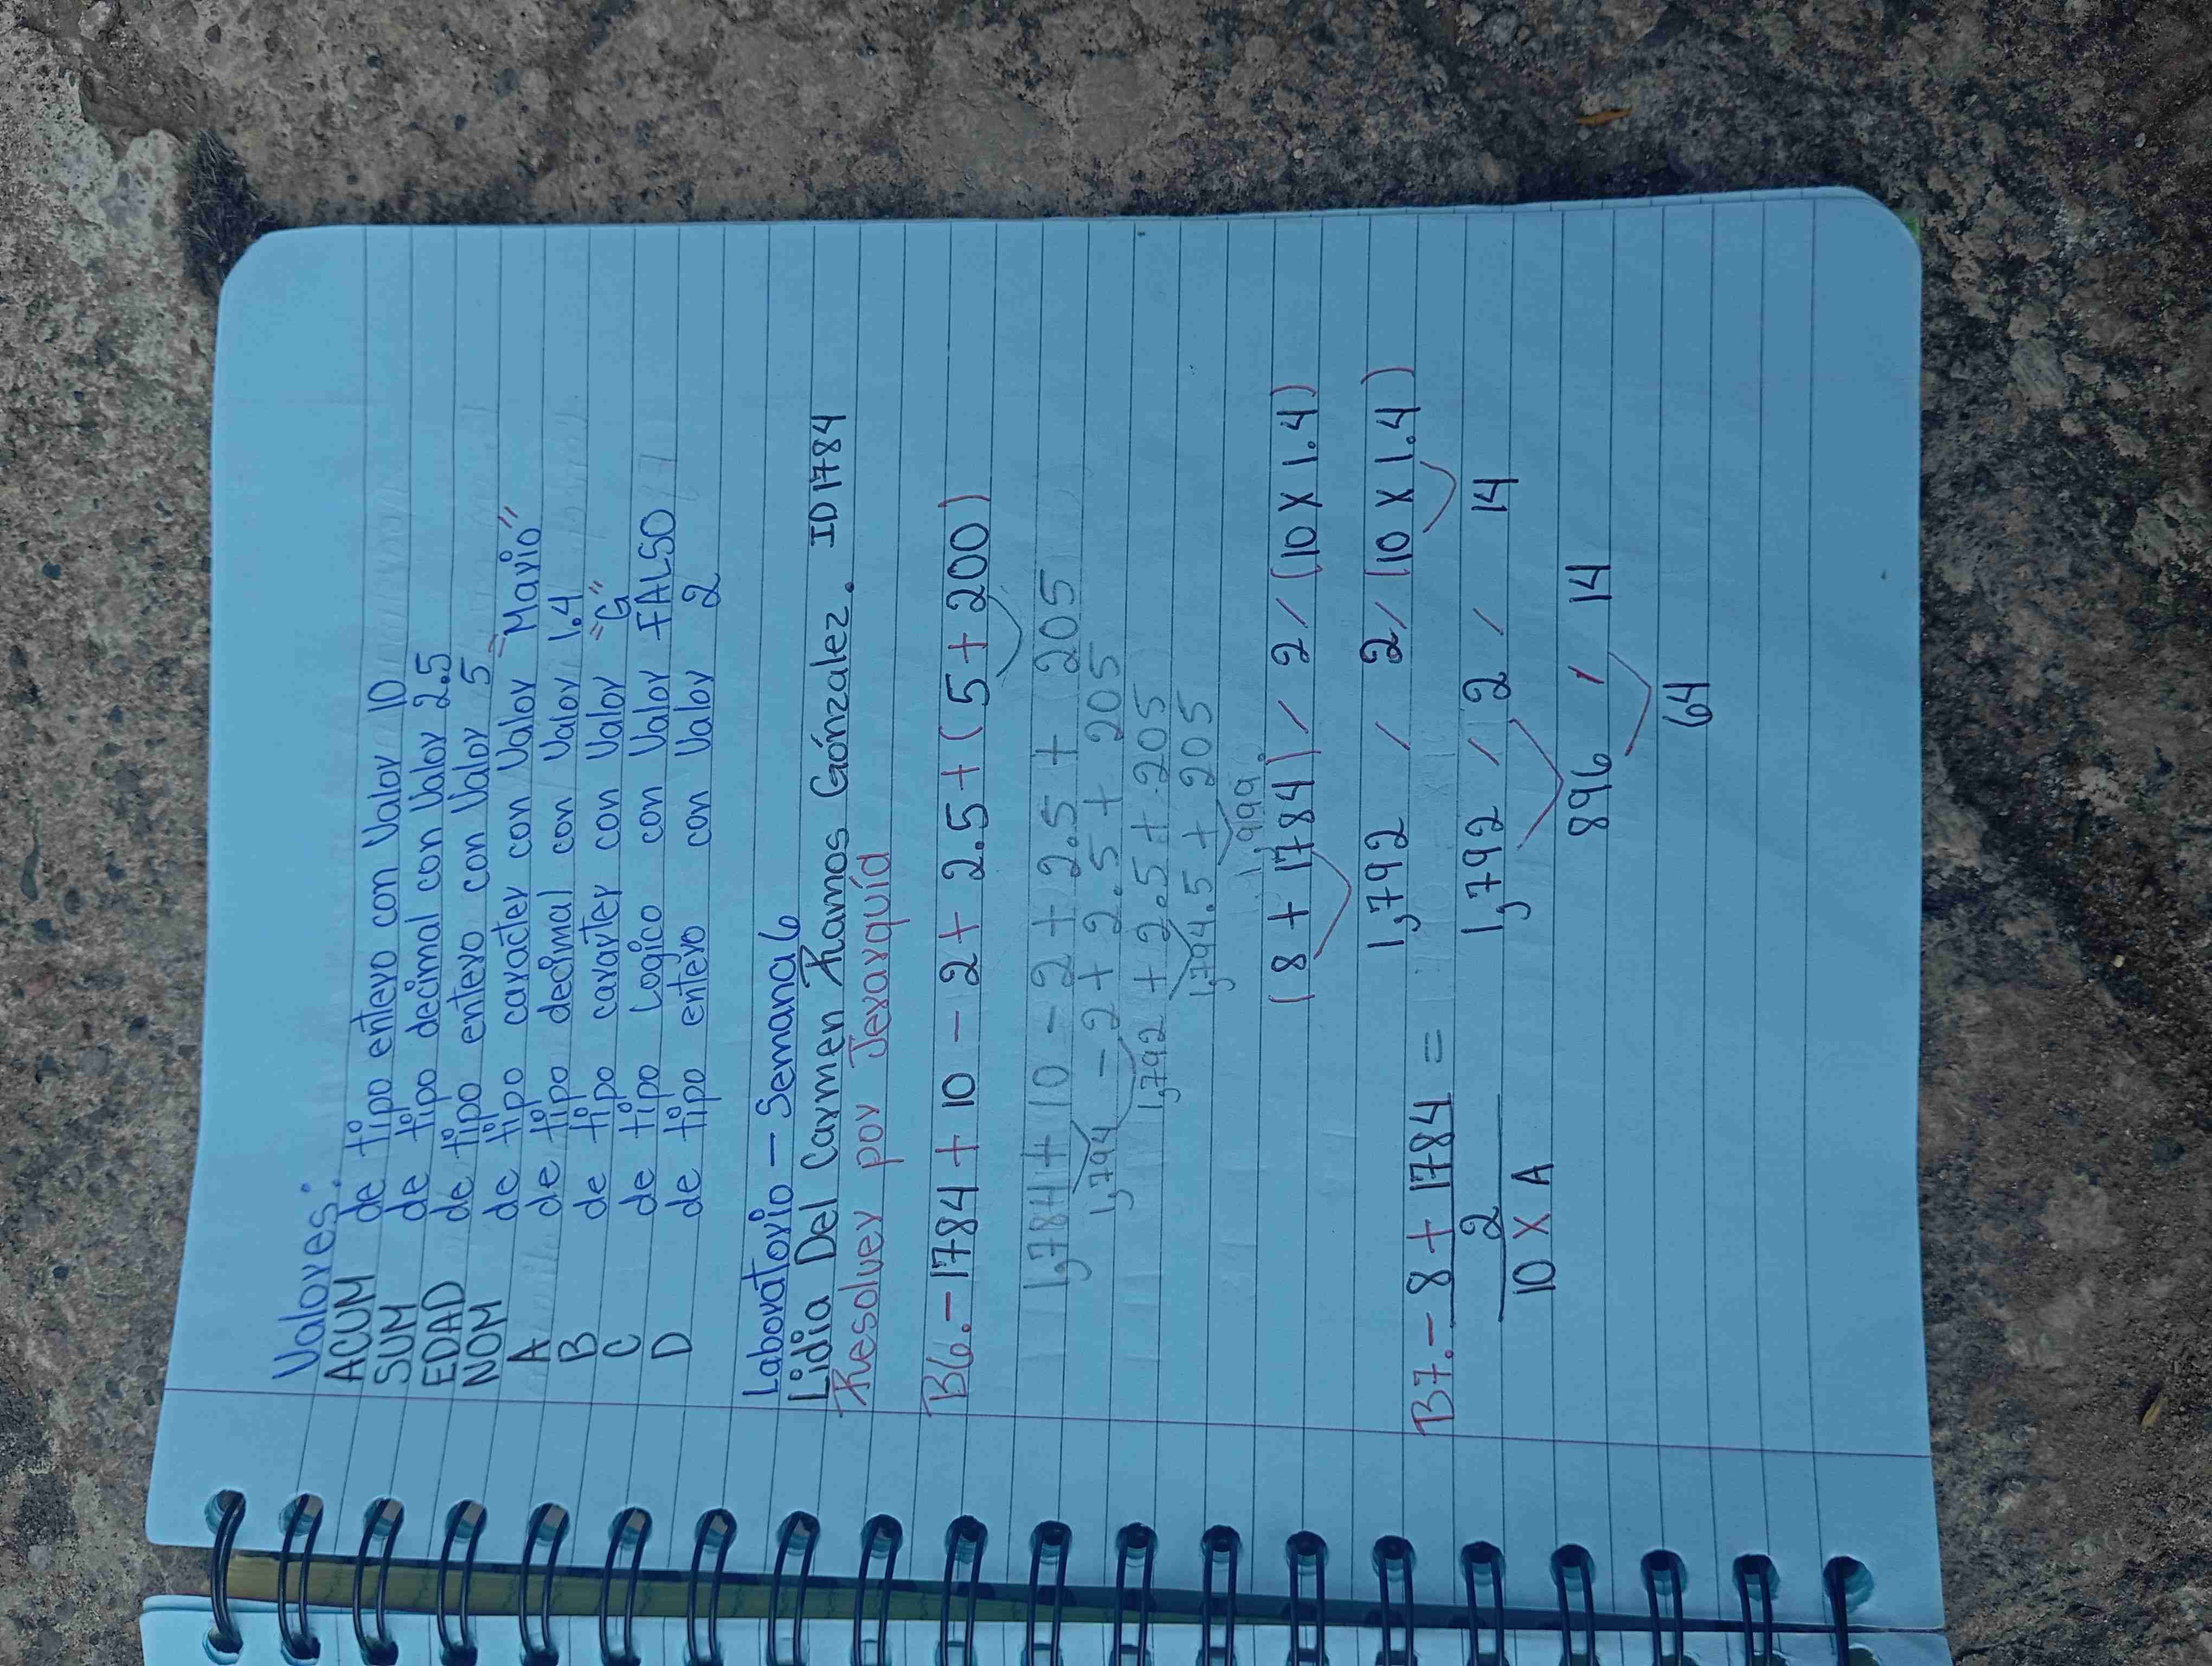 Valores:
ACUM de tipo entero con Valor 10
SUM de tipo decimal con Valor 2.5
EDAD de tipo entero con Valor 5
NOM de tipo caracter con Valor "Mario"
A de tipo decimal con Valor 1.4
B de tipo caracter con Valor "G"
C de tipo Logico con Valor FALSO
D de tipo entero con Valor 2
Laboratorio - Semana 6
Lidia Del Carmen Ramos Gónzalez. ID1784
Resolver por Jerarquíd
B6.- 1784 + 10 - 2 + 2.5 + (5 + 200)
1,784 + 10 - 2 + 2.5 + 205
1,794 - 2 + 2.5 + 205
1,792 + 2.5 + 205
1,794.5 + 205
1,999.
(8 + 1784) / 2 / (10 X 1.4)
B7.- 8 + 1784 = 1,792 / 2 / (10 X 1.4)
2 1,792 / 2 / 14
10 X A
896 / 14
64